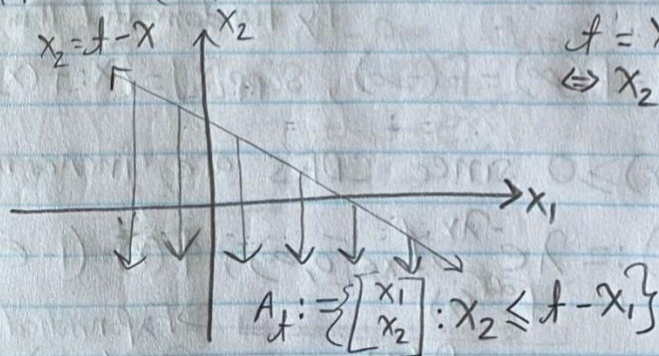 x₂ = t - x
x₂
t =
⇔ x₂
x₁
A_t := {[x₁ x₂] : x₂ ≤ t - x₁}